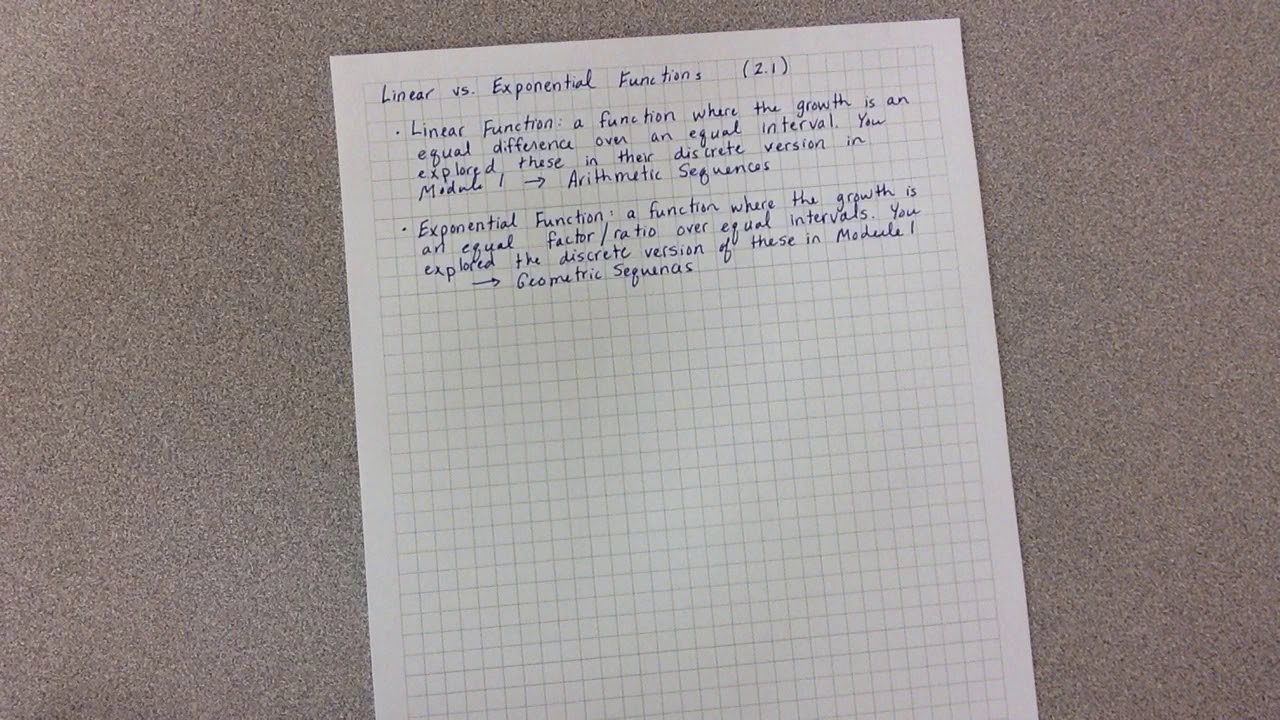 Linear vs. Exponential Functions (2.1)
· Linear Function: a function where the growth is an
equal difference over an equal interval. You
explored these in their discrete version in
Module 1 → Arithmetic Sequences
· Exponential Function: a function where the growth is
an equal factor/ratio over equal intervals. You
explored the discrete version of these in Module 1
→ Geometric Sequences